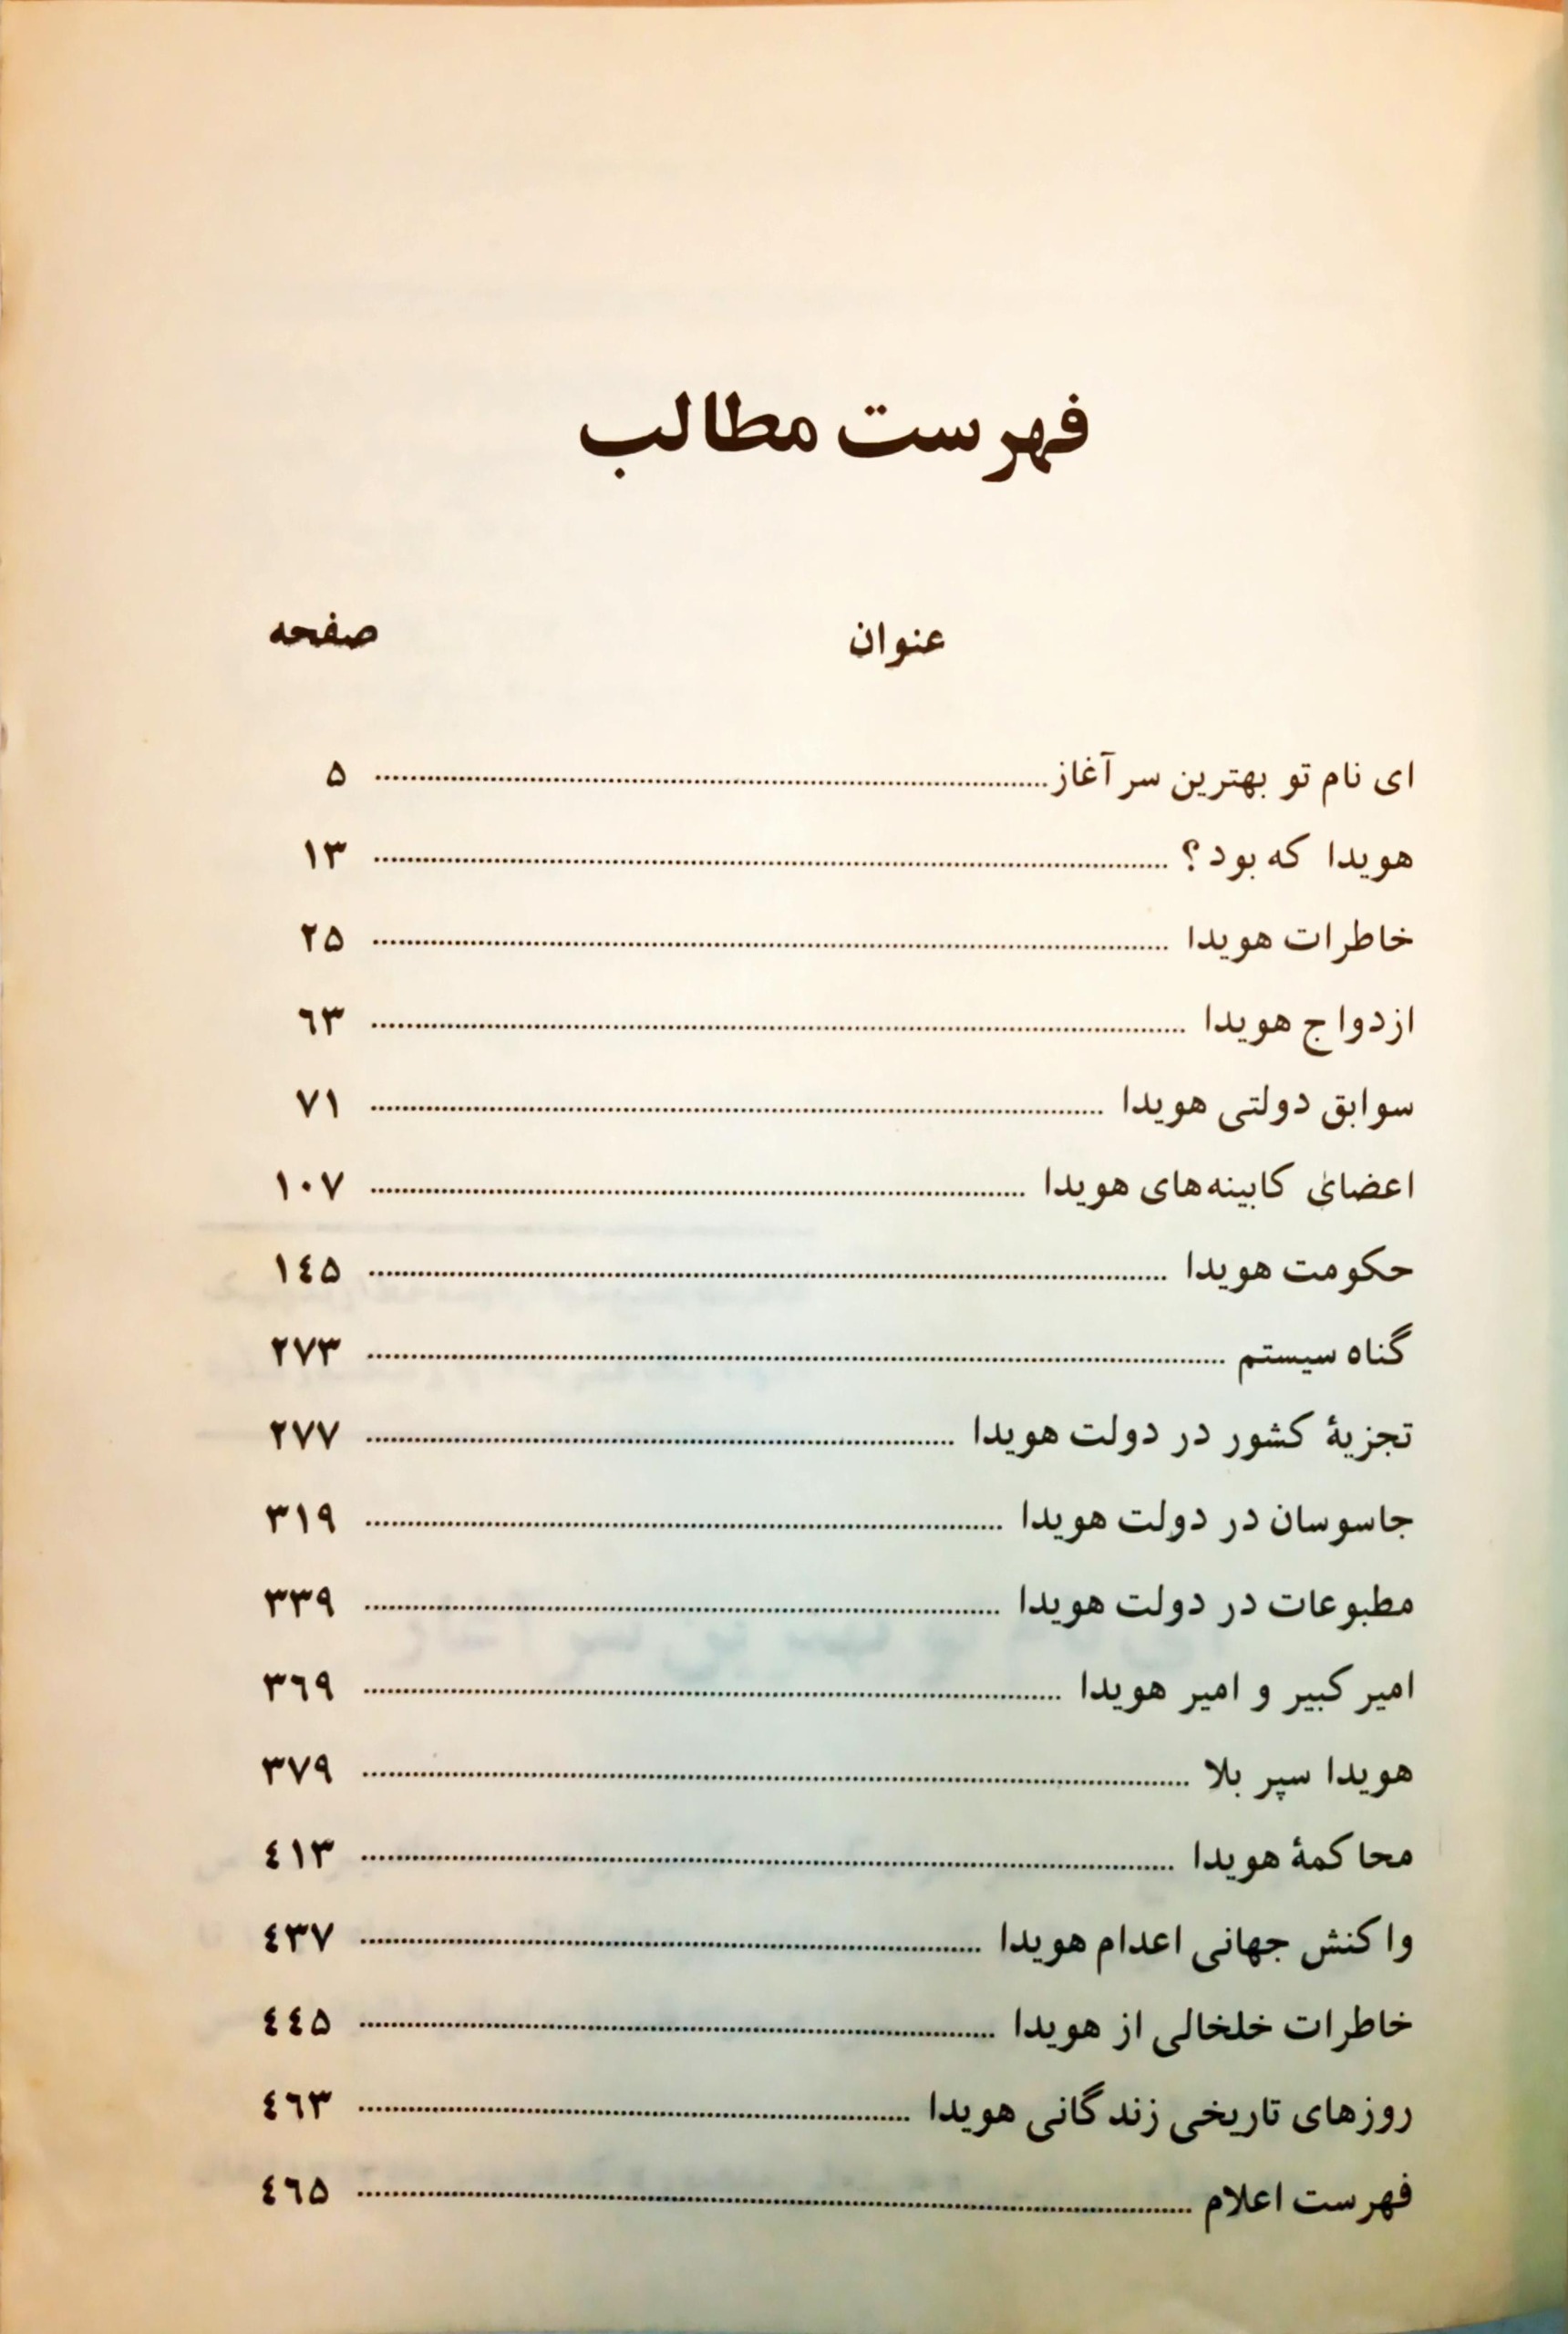 فهرست مطالب
عنوان صفحه
ای نام تو بهترین سر آغاز ........ ۵
هویدا که بود؟ ........ ۱۳
خاطرات هویدا ........ ۲۵
ازدواج هویدا ........ ٦۳
سوابق دولتی هویدا ........ ۷۱
اعضای کابینه‌های هویدا ........ ۱۰۷
حکومت هویدا ........ ۱٤۵
گناه سیستم ........ ۲۷۳
تجزیۀ کشور در دولت هویدا ........ ۲۷۷
جاسوسان در دولت هویدا ........ ۳۱۹
مطبوعات در دولت هویدا ........ ۳۳۹
امیر کبیر و امیر هویدا ........ ۳٦۹
هویدا سپر بلا ........ ۳۷۹
محاکمۀ هویدا ........ ٤۱۳
واکنش جهانی اعدام هویدا ........ ٤۳۷
خاطرات خلخالی از هویدا ........ ٤٤۵
روزهای تاریخی زندگانی هویدا ........ ٤٦۳
فهرست اعلام ........ ٤٦۵